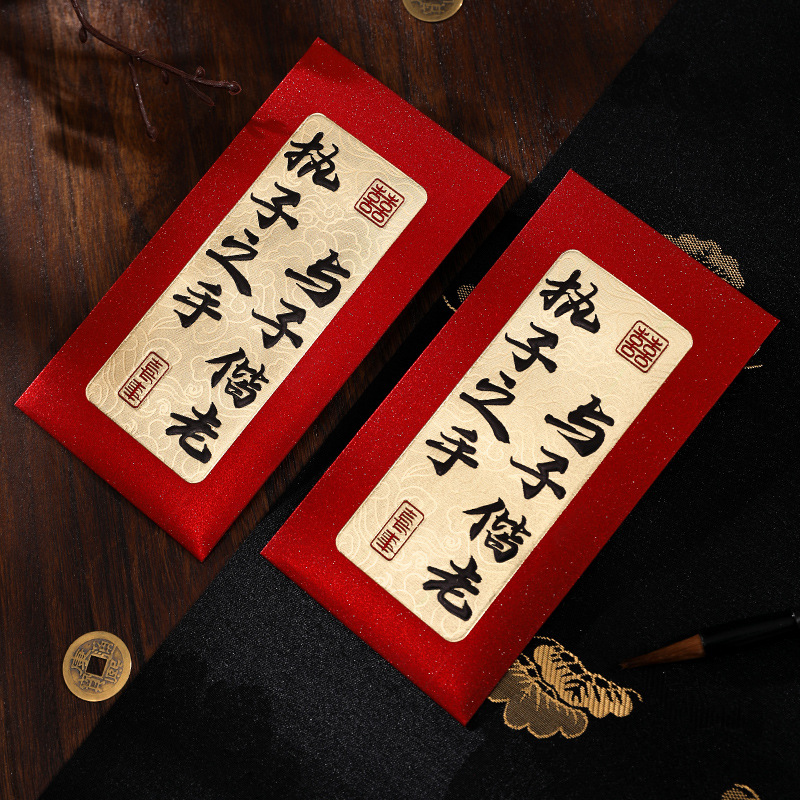 执子之手
囍
与子偕老
执子之手
囍
与子偕老